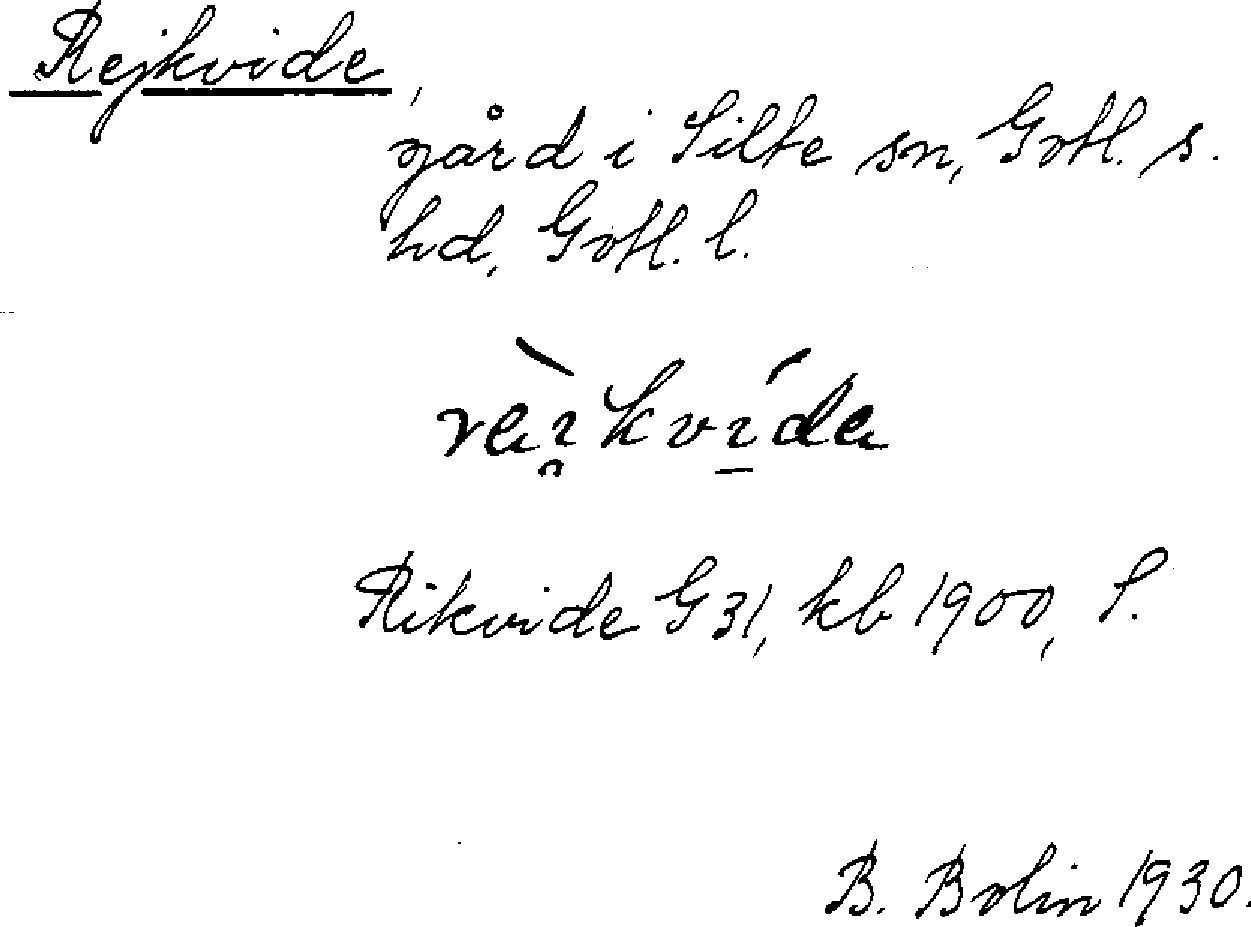 Rejkvide,
gård i Silte sn, Gotl. s.
hd, Gotl. l.
Rikvide G 31, kb 1900, S.
B. Bolin 1930.